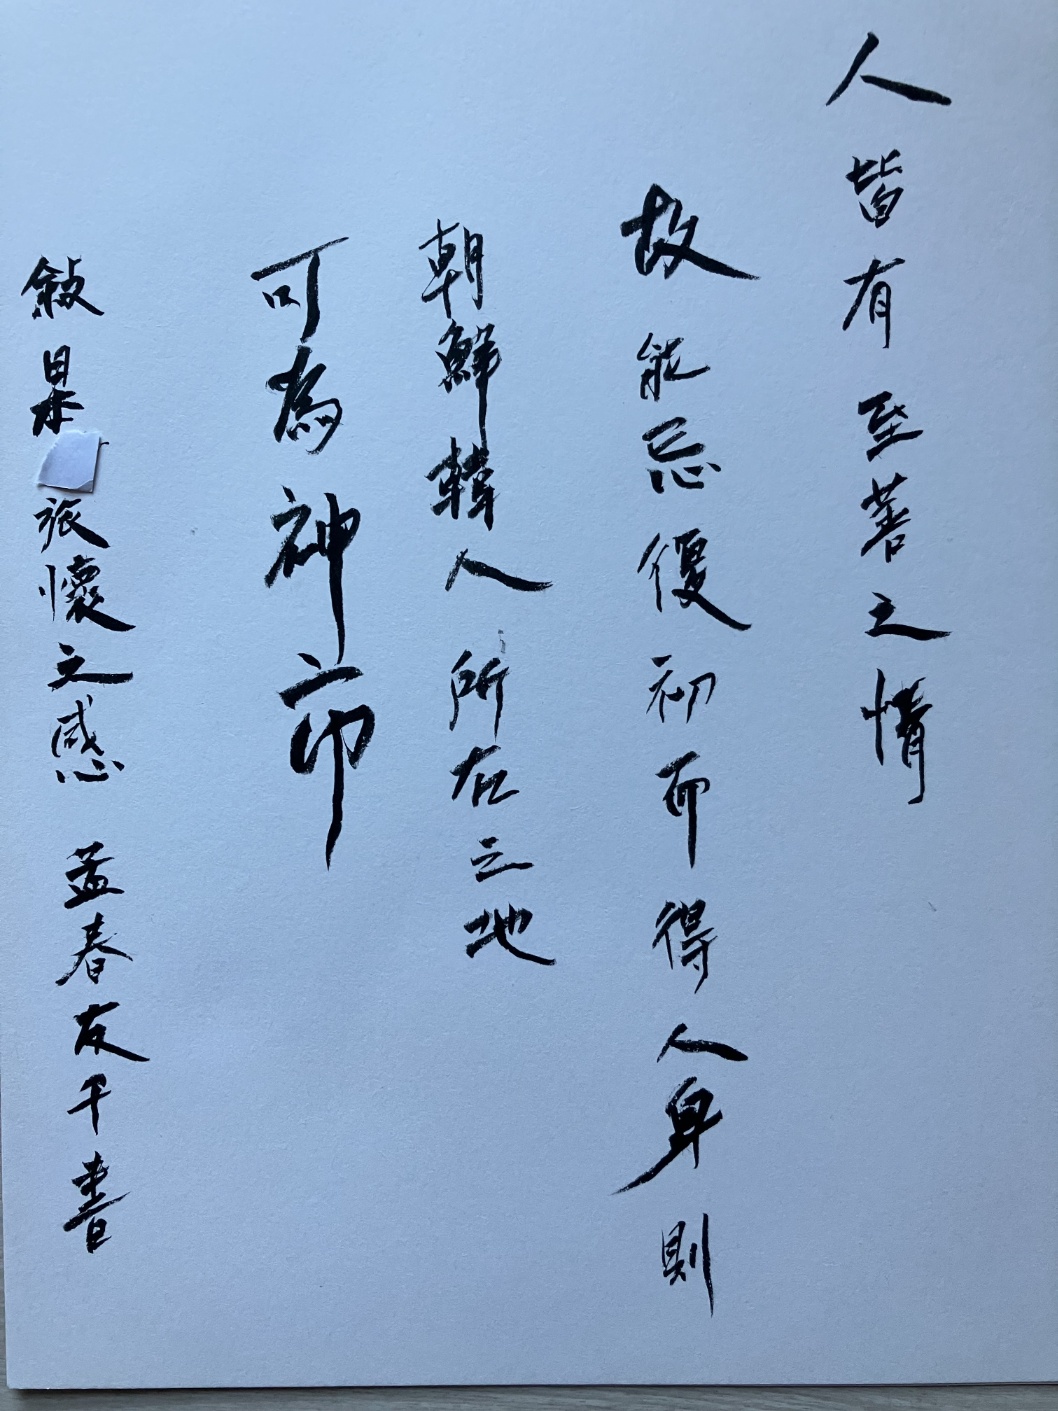 人皆有至善之情
故能忘復初而得人身則
朝鮮韓人所在之地
可為神市
敍杲旅懷之感 孟春友千書